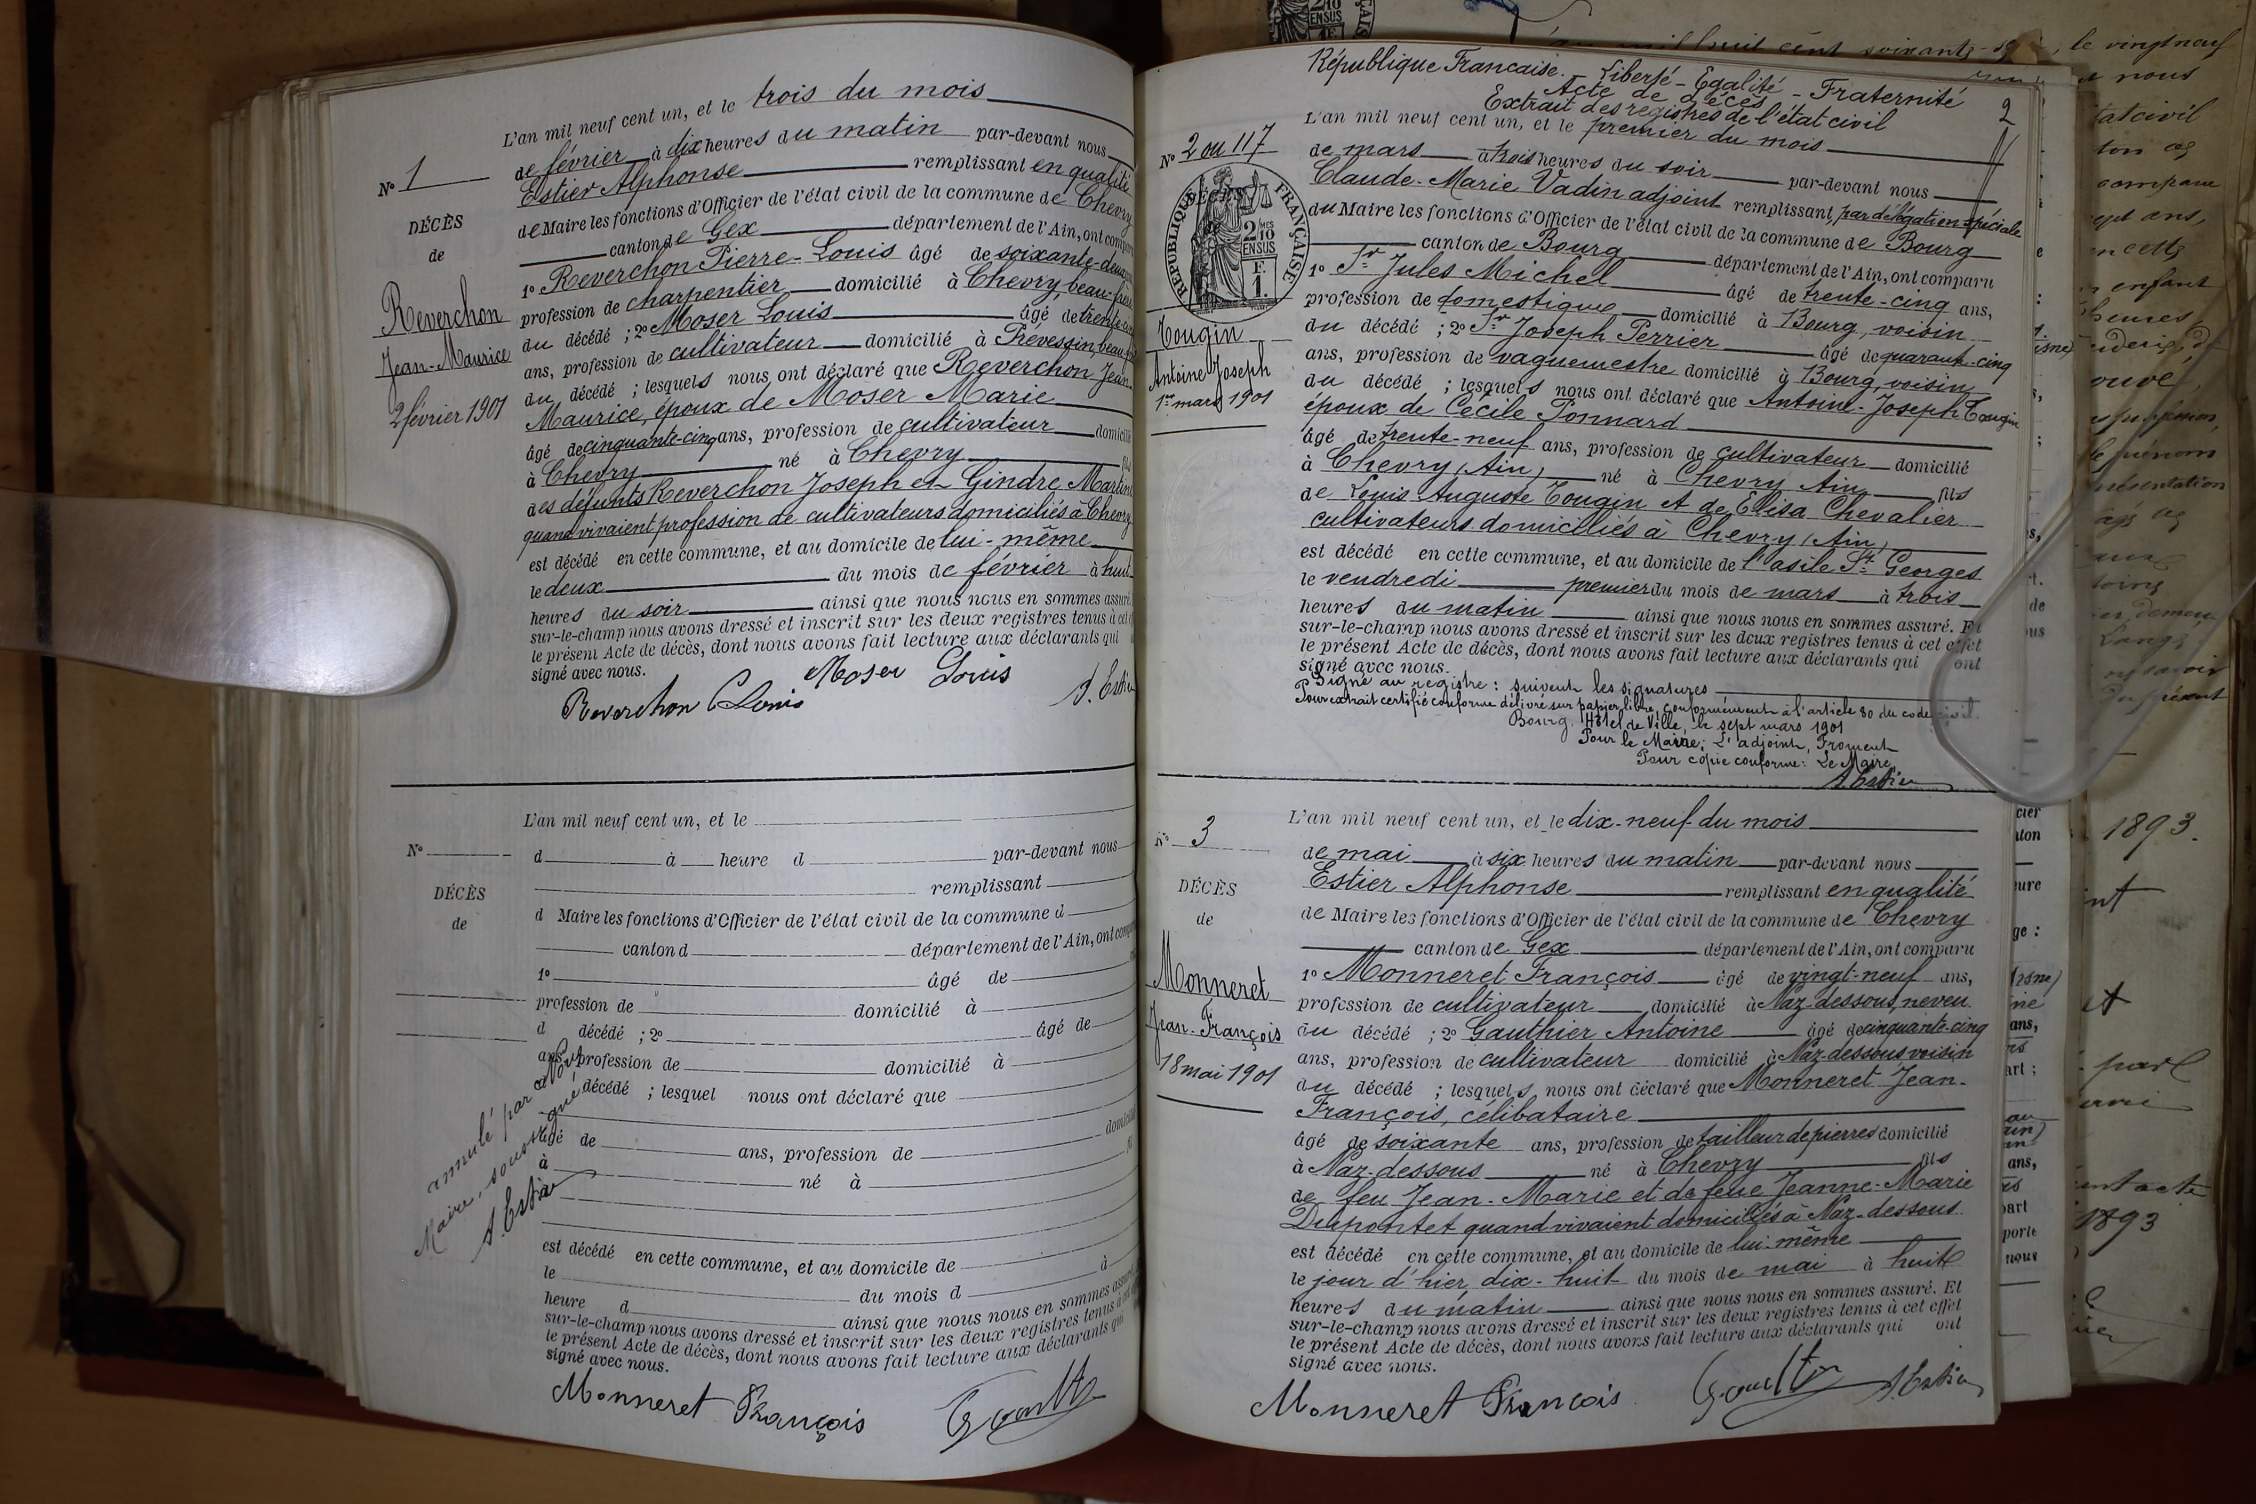 N° 1
DÉCÈS
de
Reverchon
Jean-Maurice
2 février 1901
L'an mil neuf cent un, et le trois du mois
de février à dix heures du matin par-devant nous
Estier Alphonse remplissant en qualité
de Maire les fonctions d'Officier de l'état civil de la commune de Chevry
canton de Gex département de l'Ain, ont comparu
1° Reverchon Pierre-Louis âgé de soixante-deux
profession de charpentier domicilié à Chevry, beau-frère
du décédé ; 2° Moser Louis âgé de
ans, profession de cultivateur domicilié à Prévessin, beau-
du décédé ; lesquels nous ont déclaré que Reverchon Jean-
Maurice, époux de Moser Marie
âgé de cinquante-cinq ans, profession de cultivateur domicilié
à Chevry né à Chevry fils
des défunts Reverchon Joseph et Gindre Martine
quand vivaient profession de cultivateurs domiciliés à Chevry
est décédé en cette commune, et au domicile de lui-même
le deux du mois de février à huit
heures du soir ainsi que nous nous en sommes assuré.
sur-le-champ nous avons dressé et inscrit sur les deux registres tenus à cet
le présent Acte de décès, dont nous avons fait lecture aux déclarants qui
signé avec nous.
Reverchon Louis Moser Louis A. Estier
N°
DÉCÈS
de
L'an mil neuf cent un, et le
d à heure d par-devant nous
remplissant
d Maire les fonctions d'Officier de l'état civil de la commune d
canton d département de l'Ain, ont comparu
1° âgé de
profession de domicilié à
d décédé ; 2° âgé de
ans, profession de domicilié à
d décédé ; lesquel nous ont déclaré que
âgé de ans, profession de domicilié
à né à fil
est décédé en cette commune, et au domicile de
le du mois d à
heure d ainsi que nous nous en sommes assuré
sur-le-champ nous avons dressé et inscrit sur les deux registres tenus à cet effet
le présent Acte de décès, dont nous avons fait lecture aux déclarants qui
signé avec nous.
annulé par Nous
Maire, soussigné
A. Estier
Monneret François Gauthier
République Francaise. Liberté - Egalité - Fraternité
Acte de décès
Extrait des registres de l'état civil
2
N° 2 ou 117
RÉPUBLIQUE FRANÇAISE
DÉCÈS
2 MES 10 EN SUS
F. 1.
Tougin
Antoine Joseph
1er mars 1901
L'an mil neuf cent un, et le premier du mois
de mars à trois heures du soir par-devant nous
Claude-Marie Vadin adjoint remplissant, par délégation spéciale
du Maire les fonctions d'Officier de l'état civil de la commune de Bourg
canton de Bourg département de l'Ain, ont comparu
1° Sr Jules Michel âgé de trente-cinq ans,
profession de domestique domicilié à Bourg, voisin
du décédé ; 2° Sr Joseph Perrier âgé de quarante-cinq
ans, profession de vaguemestre domicilié à Bourg, voisin
du décédé ; lesquels nous ont déclaré que Antoine-Joseph Tougin
époux de Cécile Ponnard
âgé de trente-neuf ans, profession de cultivateur domicilié
à Chevry (Ain) né à Chevry Ain fils
de Louis Auguste Tougin et de Elisa Chevalier
cultivateurs domiciliés à Chevry (Ain)
est décédé en cette commune, et au domicile de l'asile St Georges
le vendredi premier du mois de mars à trois
heures du matin ainsi que nous nous en sommes assuré. Et
sur-le-champ nous avons dressé et inscrit sur les deux registres tenus à cet effet
le présent Acte de décès, dont nous avons fait lecture aux déclarants qui ont
signé avec nous.
Signé au registre : suivent les signatures
Pour extrait certifié conforme délivré sur papier libre, conformément à l'article 80 du code civil.
Bourg, Hôtel de Ville, le sept mars 1901
Pour le Maire ; L'adjoint, Froment
Pour copie conforme : Le Maire,
A. Estier
N° 3
DÉCÈS
de
Monneret
Jean-François
18 mai 1901
L'an mil neuf cent un, et le dix-neuf du mois
de mai à six heures du matin par-devant nous
Estier Alphonse remplissant en qualité
de Maire les fonctions d'Officier de l'état civil de la commune de Chevry
canton de Gex département de l'Ain, ont comparu
1° Monneret François âgé de vingt-neuf ans,
profession de cultivateur domicilié à Naz-dessous, neveu
du décédé ; 2° Gauthier Antoine âgé de cinquante-cinq
ans, profession de cultivateur domicilié à Naz-dessous voisin
du décédé ; lesquels nous ont déclaré que Monneret Jean-
François, célibataire
âgé de soixante ans, profession de tailleur de pierres domicilié
à Naz-dessous né à Chevry fils
de feu Jean-Marie et de feue Jeanne-Marie
Dupontet quand vivaient domiciliés à Naz-dessous
est décédé en cette commune, et au domicile de lui-même
le jour d'hier, dix-huit du mois de mai à huit
heures du matin ainsi que nous nous en sommes assuré. Et
sur-le-champ nous avons dressé et inscrit sur les deux registres tenus à cet effet
le présent Acte de décès, dont nous avons fait lecture aux déclarants qui ont
signé avec nous.
Monneret François Gauthier A. Estier
le vingt neuf
nous
1893.
1893